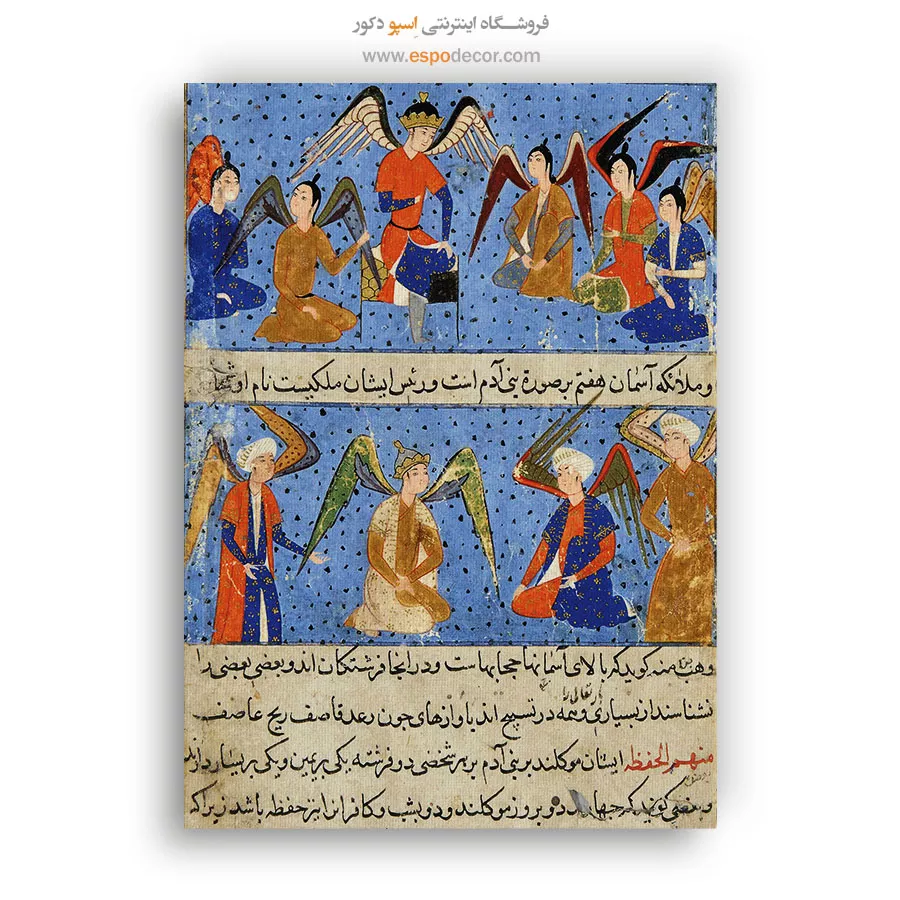 فروشگاه اینترنتی اِسپو دکور
www.espodecor.com
و ملائکه آسمان هفتم بر صورة بنی آدم است و رئس ایشان ملکیست نام او
وهب بن منبه کوید که بالای آسمانها حجابهاست و در انجا فرشتکان اند و بعضی بعضی را
نشناسند از بسیاری و همه در تسبیح اند باوازهای چون رعد قاصف ریح عاصف
منهم الحفظه ایشان موکلند بر بنی آدم بر هر شخصی دو فرشته یکی بر یمین و یکی بر یسار دارند
و بعضی کویند که چهار دو بروز موکلند و دو بشب و کافرانرا نیز حفظه باشد زیرا که